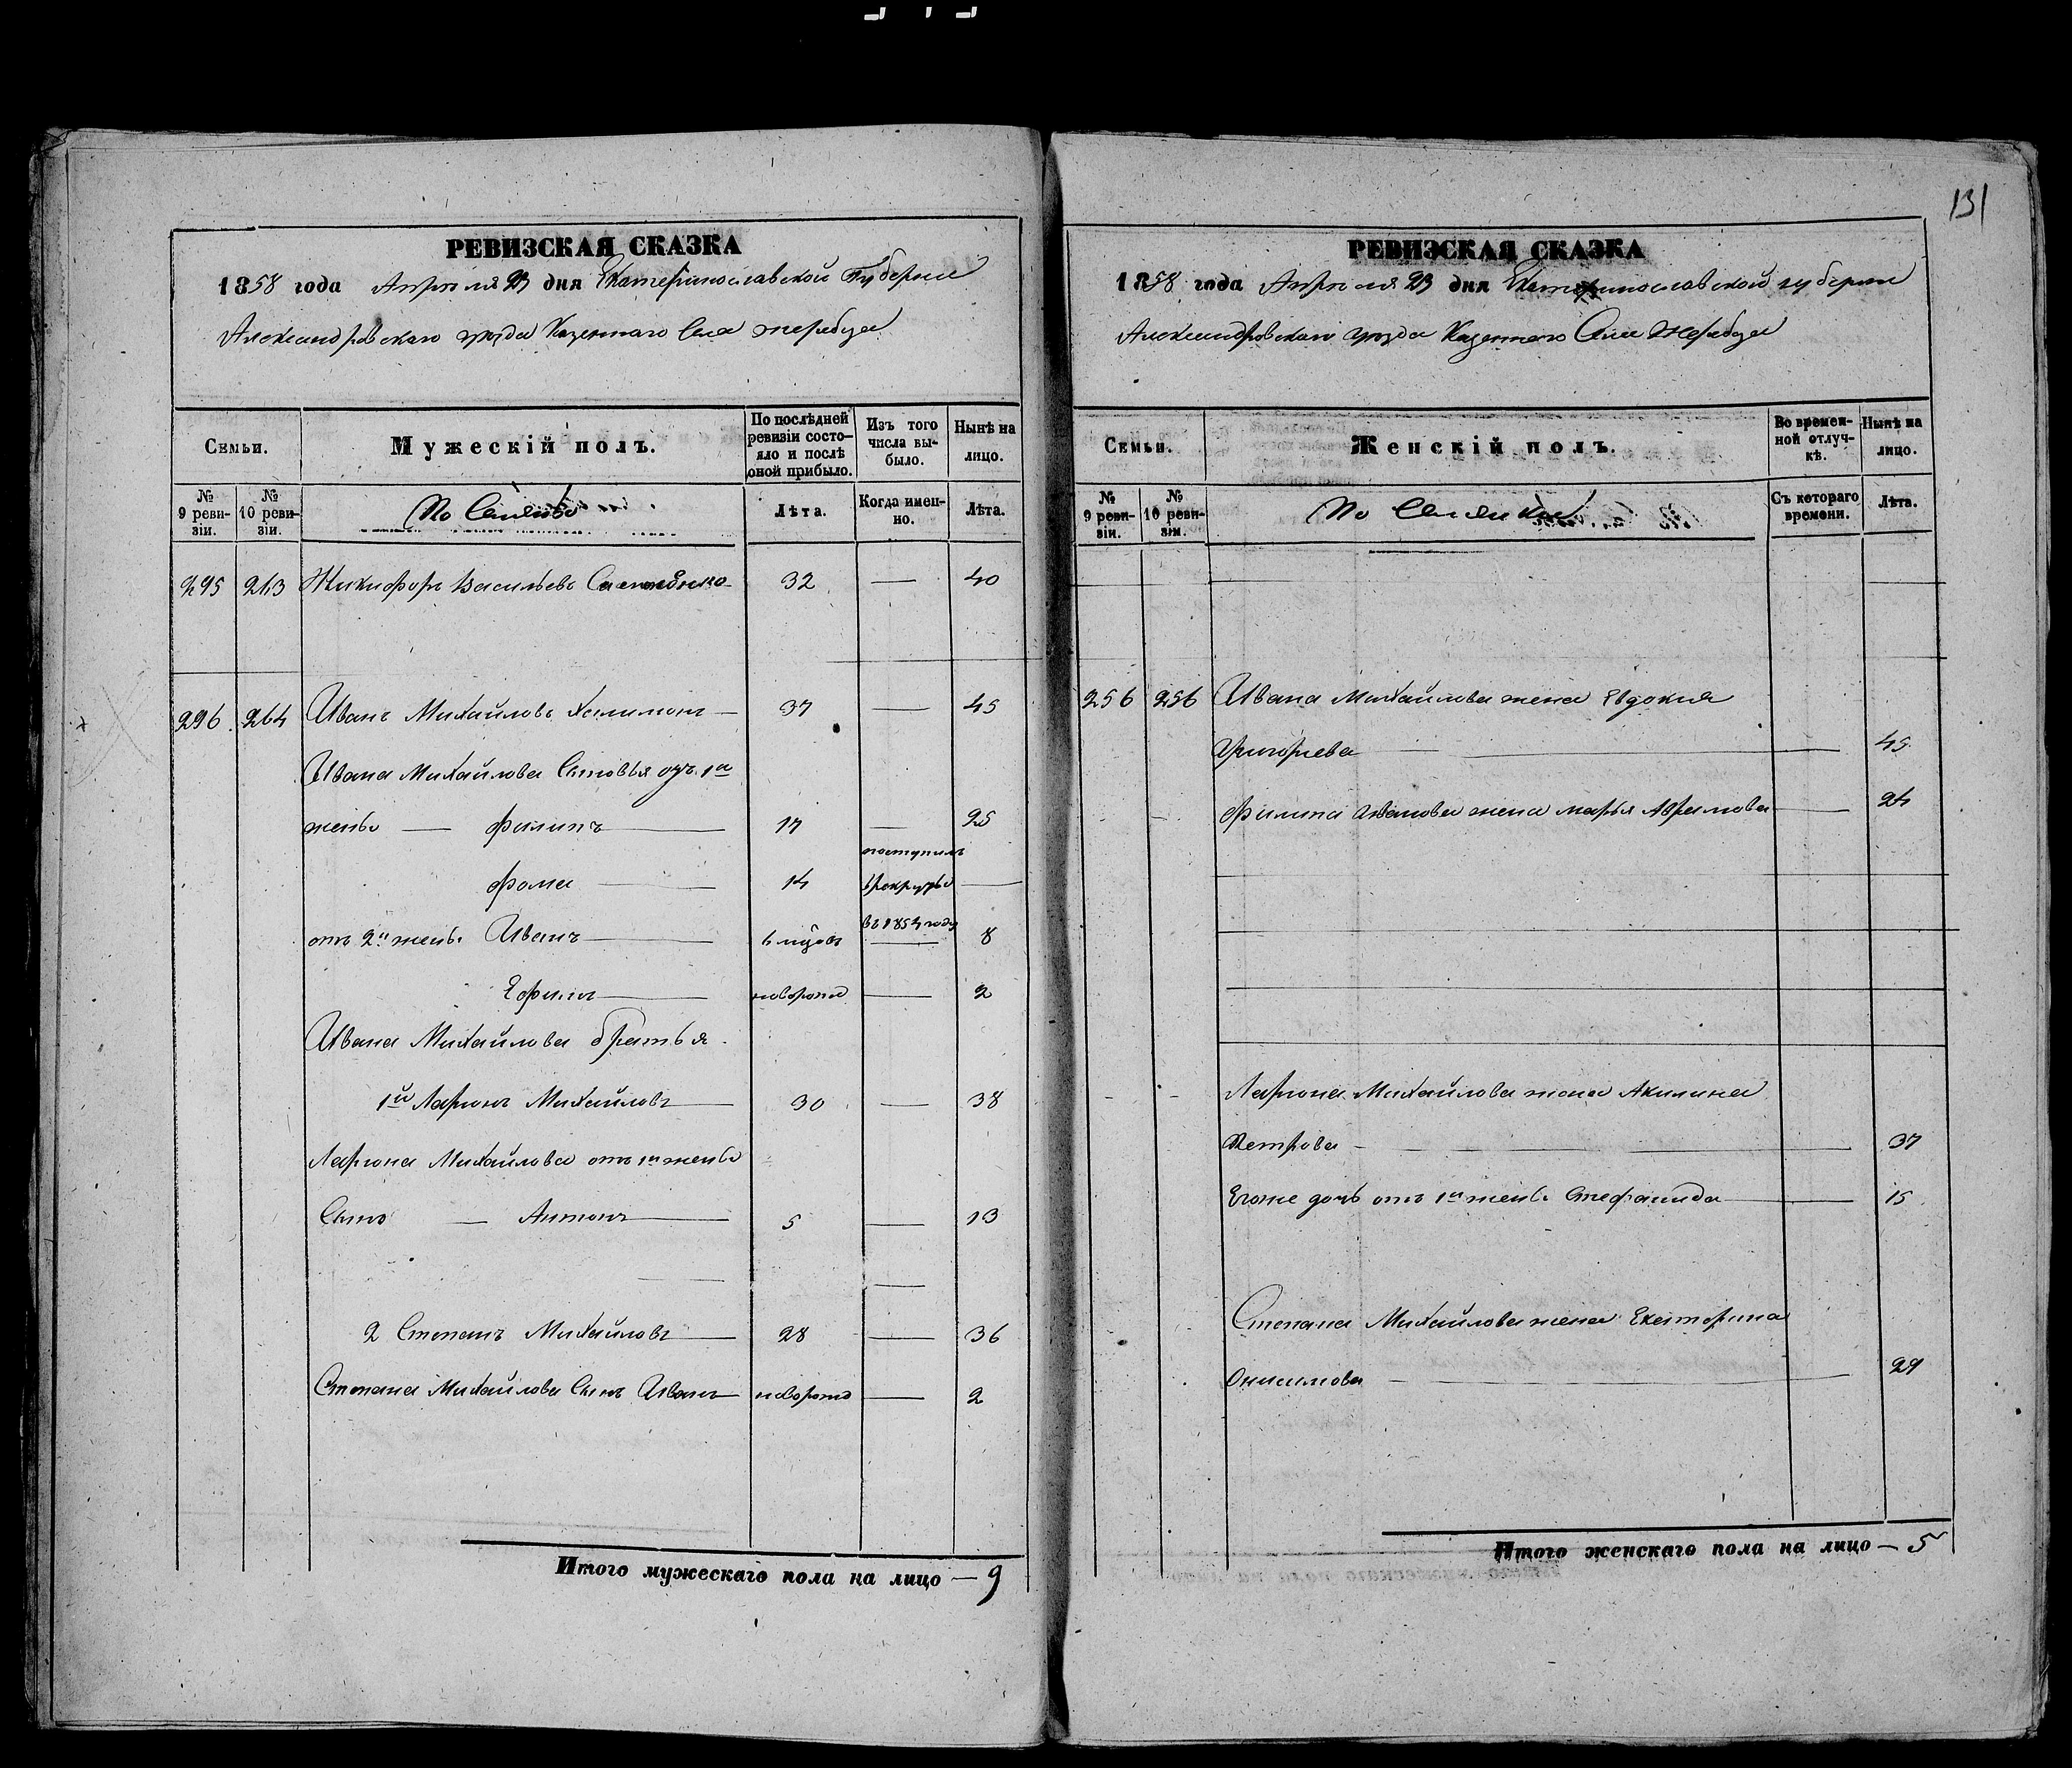 131
РЕВИЗСКАЯ СКАЗКА
1858 года Апреля 23 дня Екатеринославской Губернии
Александровскаго уезда Казеннаго Села Жеребца
Семьи.
Мужескій полъ.
По послѣдней ревизіи состо-яло и послѣ оной прибыло.
Изъ того числа вы-было.
Нынѣ на лицо.
№ 9 реви-зіи.
№ 10 реви-зіи.
Лѣта.
Когда имен-но.
Лѣта.
295 263 Никифоръ Васильевъ 32 — 40
296 264 Иванъ Михайловъ — 37 — 45
Ивана Михайлова Сыновья 1й
жены — Филипъ — 17 — 25
поступилъ
Фома — 14 врекруты —
въ 1854 году
отъ 2й жены Иванъ — — 8
Ефимъ — новорожд — 2
Ивана Михайлова братья
1й Ларионъ Михайловъ — 30 — 38
Лариона Михайлова отъ 1й жены
Сынъ — Антонъ — 5 — 13
2 Степанъ Михайловъ — 28 — 36
Степана Михайлова Сынъ Иванъ — новорожд — 2
Итого мужескаго пола на лицо — 9
РЕВИЗСКАЯ СКАЗКА
1858 года Апреля 23 дня Екатеринославской губернии
Александровскаго уезда Казеннаго Села Жеребца
Семьи.
Женскій полъ.
Во времен-ной отлуч-кѣ.
Нынѣ на лицо.
№ 9 реви-зіи.
№ 10 реви-зіи.
Съ котораго времени.
Лѣта.
256 256 Ивана Михайлова жена Евдокия
Григорьева — — 45
Филипа Иванова жена Марья Аврамова — 24
Лариона Михайлова жена Акилина
Петрова — — 37
Егоже дочь отъ 1й жены Стефанида — 15
Степана Михайлова жена Екатерина
Онисимова — — 29
Итого женскаго пола на лицо — 5